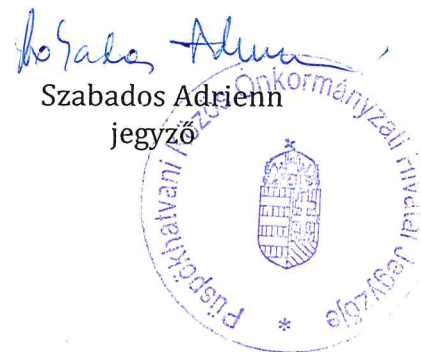 Szabados Adrienn
Szabados Adrienn
jegyző
Püspökhatvani Közös Önkormányzati Hivatal Jegyzője *